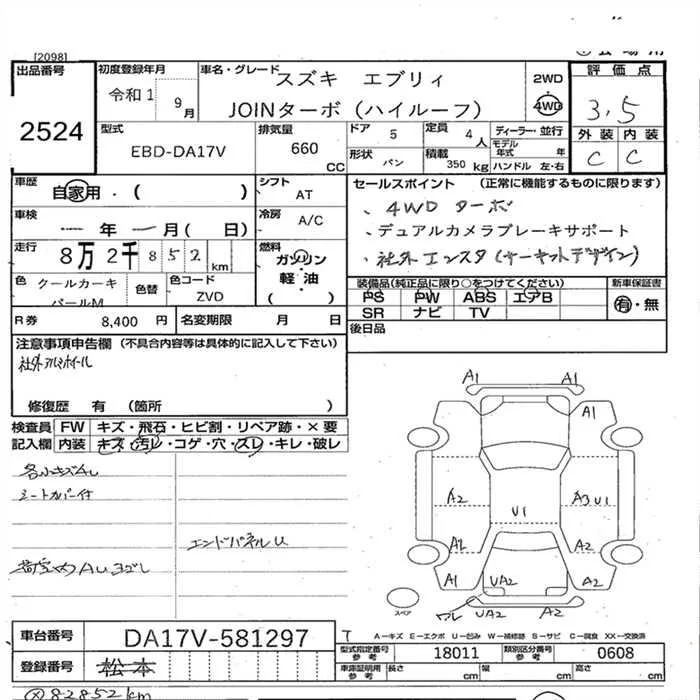 [2098]
出品番号
2524
初度登録年月
令和1 9月
車名・グレード
スズキ エブリィ
JOINターボ（ハイルーフ）
2WD
4WD
評価点
3.5
外装 内装
C C
型式
EBD-DA17V
排気量
660 CC
ドア 5
形状 バン
定員 4人
積載 350 kg
ディーラー・並行
モデル年式 年
ハンドル 左・右
車歴
自家用・( )
シフト
AT
車検
年 月( 日)
冷房
A/C
走行
8万2千852km
燃料
ガソリン
軽油
( )
色
クールカーキパールM
色替
色コード
ZVD
R券 8,400 円
名変期限 月 日
セールスポイント (正常に機能するものに限ります)
、4WD ターボ
、デュアルカメラブレーキサポート
、社外エンスタ(サーキットデザイン)
装備品(純正品に限り○をつけてください)
PS PW ABS エアB
SR ナビ TV
新車保証書
有・無
後日品
注意事項申告欄 (不具合内容等は具体的に記入して下さい)
社外アルミホイール
修復歴 有 (箇所 )
検査員記入欄
FW キズ・飛石・ヒビ割・リペア跡・×要
内装 キズ・汚レ・コゲ・穴・スレ・キレ・破レ
各小キズAU
シートカバー付
エンドパネルU
荷室内AUヨゴレ
A1 A1
A1
A2 U1 A3 U1
A2 A2
A1 UA2 A2
UA2 A2
スペア
車台番号
DA17V-581297
登録番号
松本
T A－キズ E－エクボ U－凹み W－補修跡 S－サビ C－腐食 XX－交換済
型式指定番号 参考 18011
類別区分番号 参考 0608
車庫証明用 参考 長さ cm 幅 cm 高さ cm
82852km